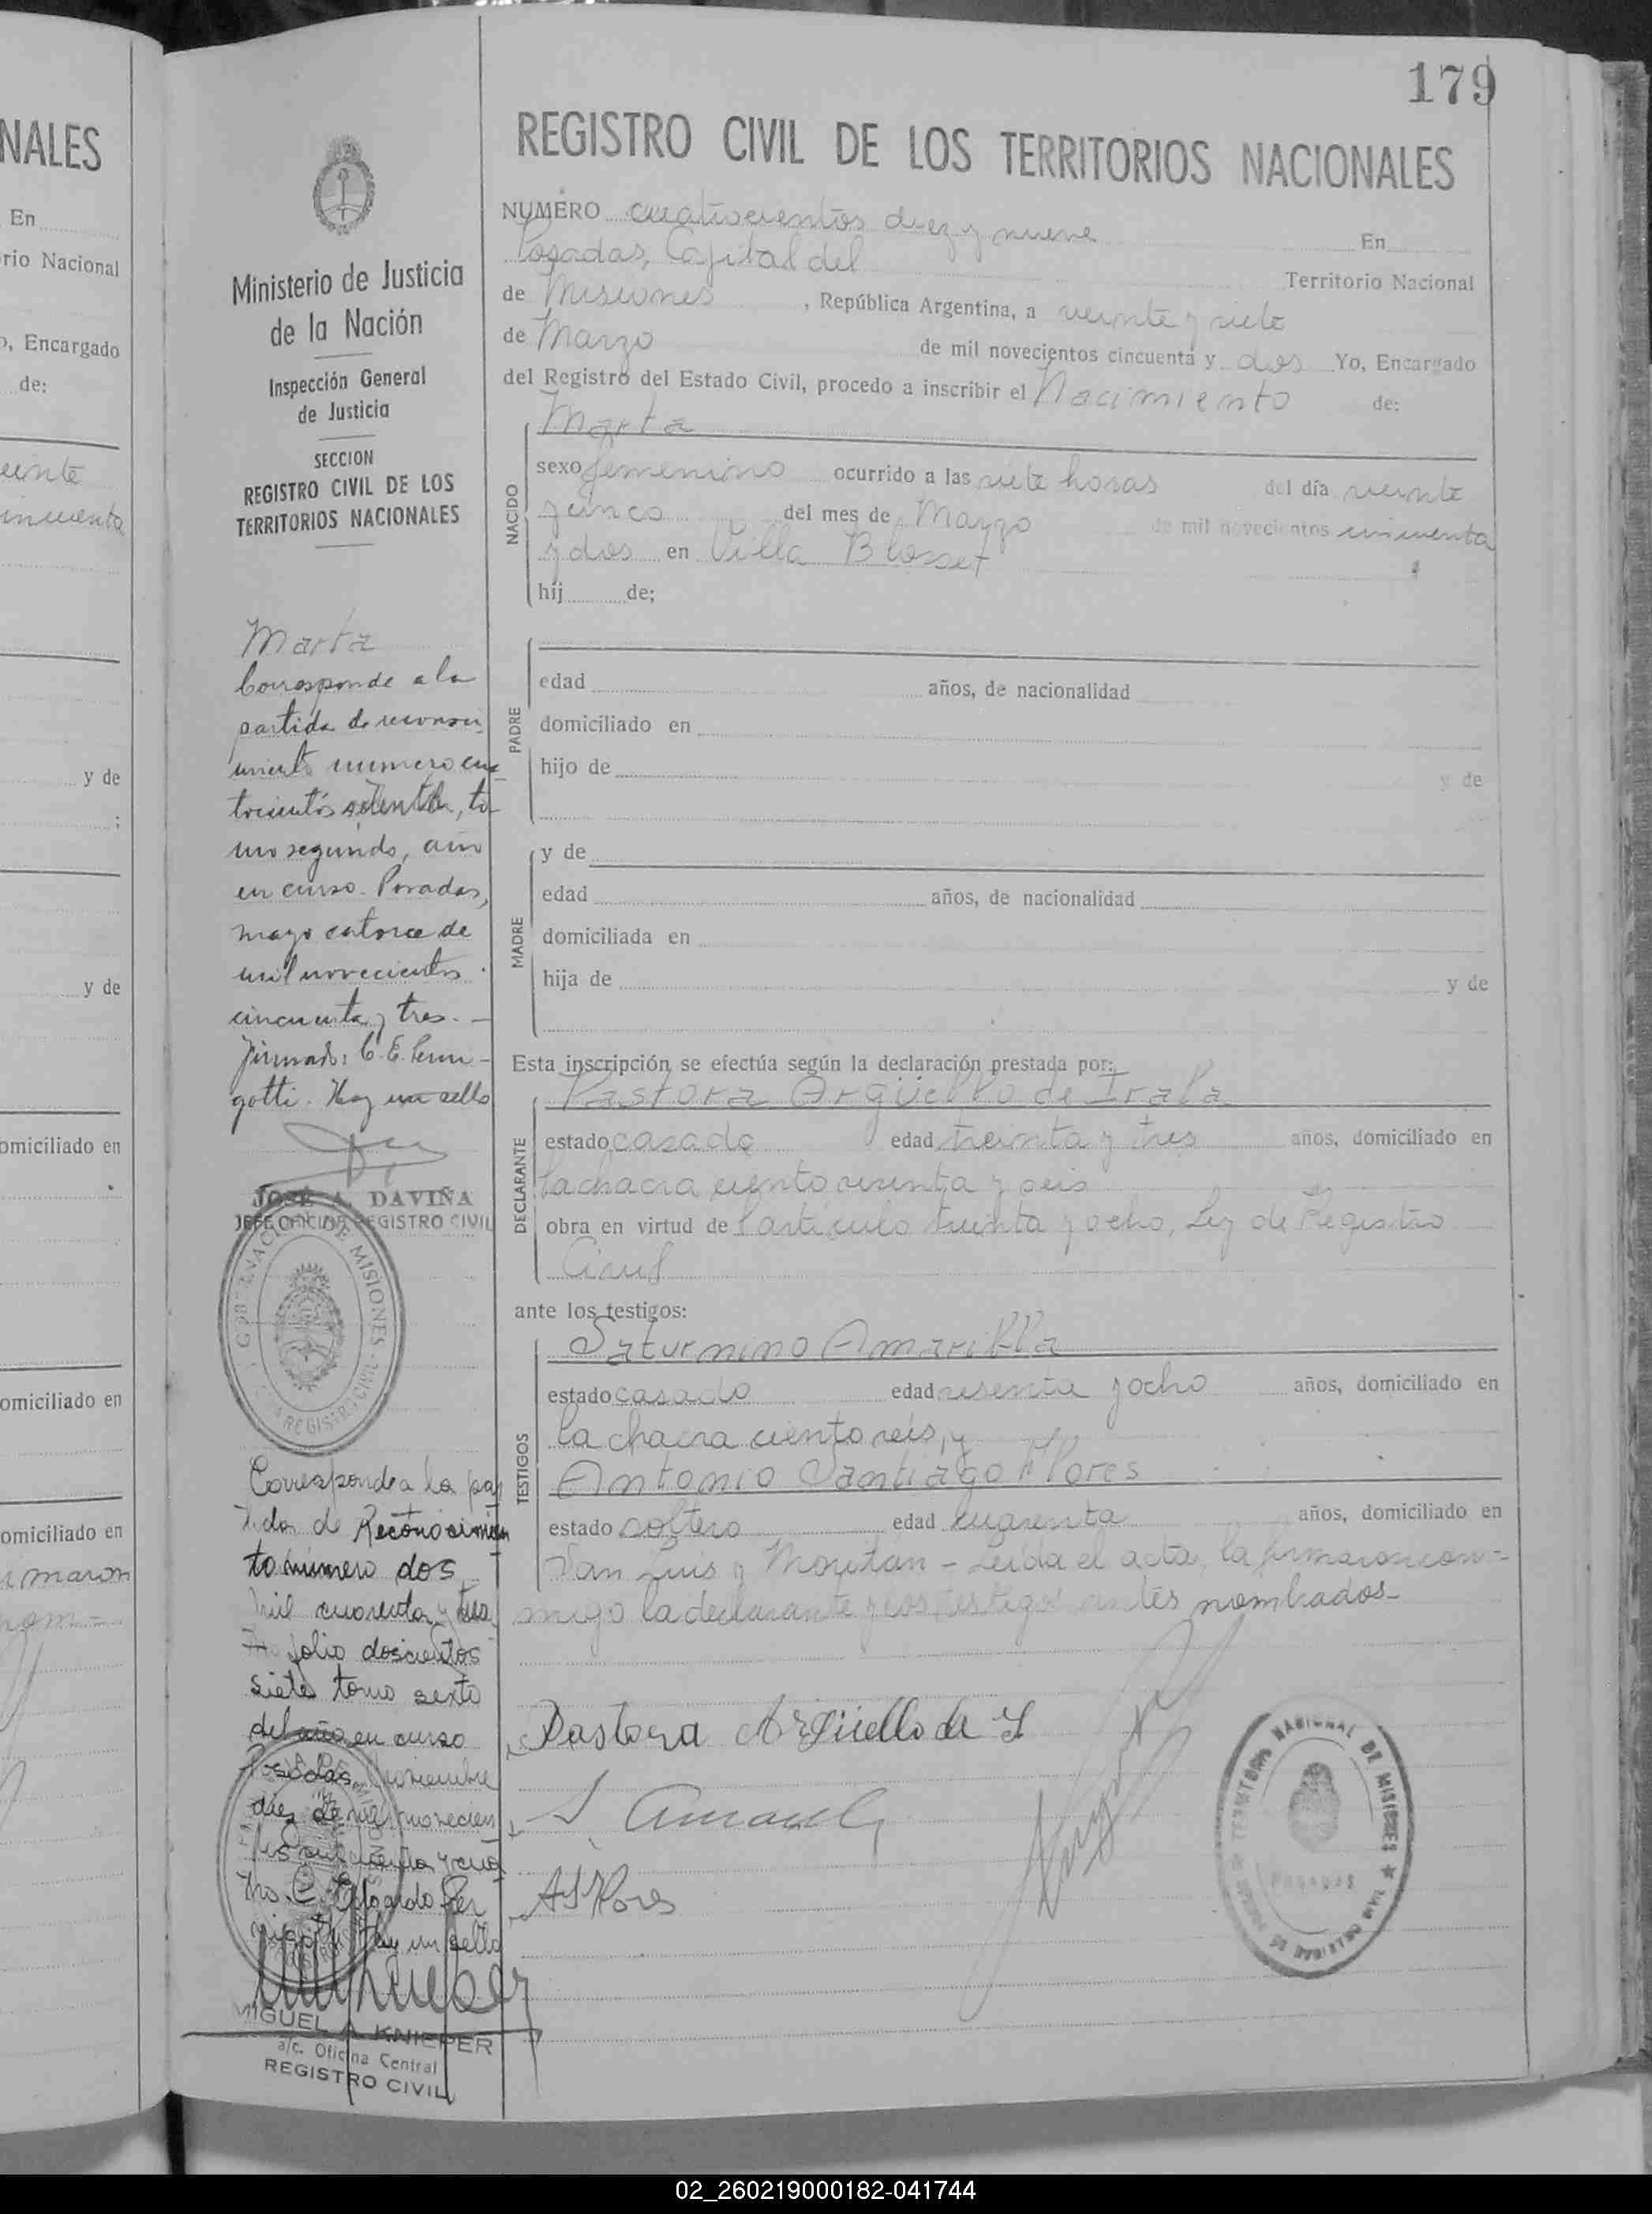 179
REGISTRO CIVIL DE LOS TERRITORIOS NACIONALES
NUMERO cuatrocientos diez y nueve En
Posadas, Capital del Territorio Nacional
de Misiones, República Argentina, a veinte y siete
de Marzo de mil novecientos cincuenta y dos Yo, Encargado
del Registro del Estado Civil, procedo a inscribir el Nacimiento de:
NACIDO
Marta
sexo femenino ocurrido a las siete horas del día veinte
y cinco del mes de Marzo de mil novecientos cincuenta
y dos en Villa Blosset
hij de;
PADRE
edad años, de nacionalidad
domiciliado en
hijo de y de
MADRE
y de
edad años, de nacionalidad
domiciliada en
hija de y de
Esta inscripción se efectúa según la declaración prestada por:
DECLARANTE
Pastora Argüello de Irala
estado casada edad treinta y tres años, domiciliado en
la chacra ciento y seis
obra en virtud de l artículo treinta y ocho, Ley de Registro
Civil
ante los testigos:
TESTIGOS
Saturnino Amarilla
estado casado edad sesenta y ocho años, domiciliado en
la chacra ciento seis, y
Antonio Santiago Flores
estado soltero edad cuarenta años, domiciliado en
San Luis y - Leida el acta, la firmaron con-
migo la declarante y los testigos antes nombrados-
Pastora Argüello de I
S. Amarilla
A S Flores
TERRITORIO NACIONAL DE MISIONES
POSADAS
Ministerio de Justicia
de la Nación
Inspección General
de Justicia
SECCION
REGISTRO CIVIL DE LOS
TERRITORIOS NACIONALES
Marta
Corresponde a la
partida de reconoci
miento numero cua
trocientos setenta, to-
mo segundo, año
en curso. Posadas,
mayo catorce de
mil novecientos
cincuenta y tres.-
Firmado: C. E. Pern-
gotti. Hay un sello
JOSÉ A. DAVIÑA
JEFE OFICINA REGISTRO CIVIL
GOBERNACION DE MISIONES
REGISTRO CIVIL
Corresponde a la par
tida de Reconocimien
to número dos
mil cuarenta y tres
folio doscientos
siete tomo sexto
del año en curso
Posadas, noviembre
diez de mil novecien
tos cincuenta y cua
tro. C. Edgardo Per
nigotti Hay un sello
MIGUEL A KNIEPER
a/c. Oficina Central
REGISTRO CIVIL
NALES
En
rio Nacional
o, Encargado
de:
einte
incuenta
y de
;
y de
omiciliado en
omiciliado en
omiciliado en
irmaron
nom-
02_260219000182-041744